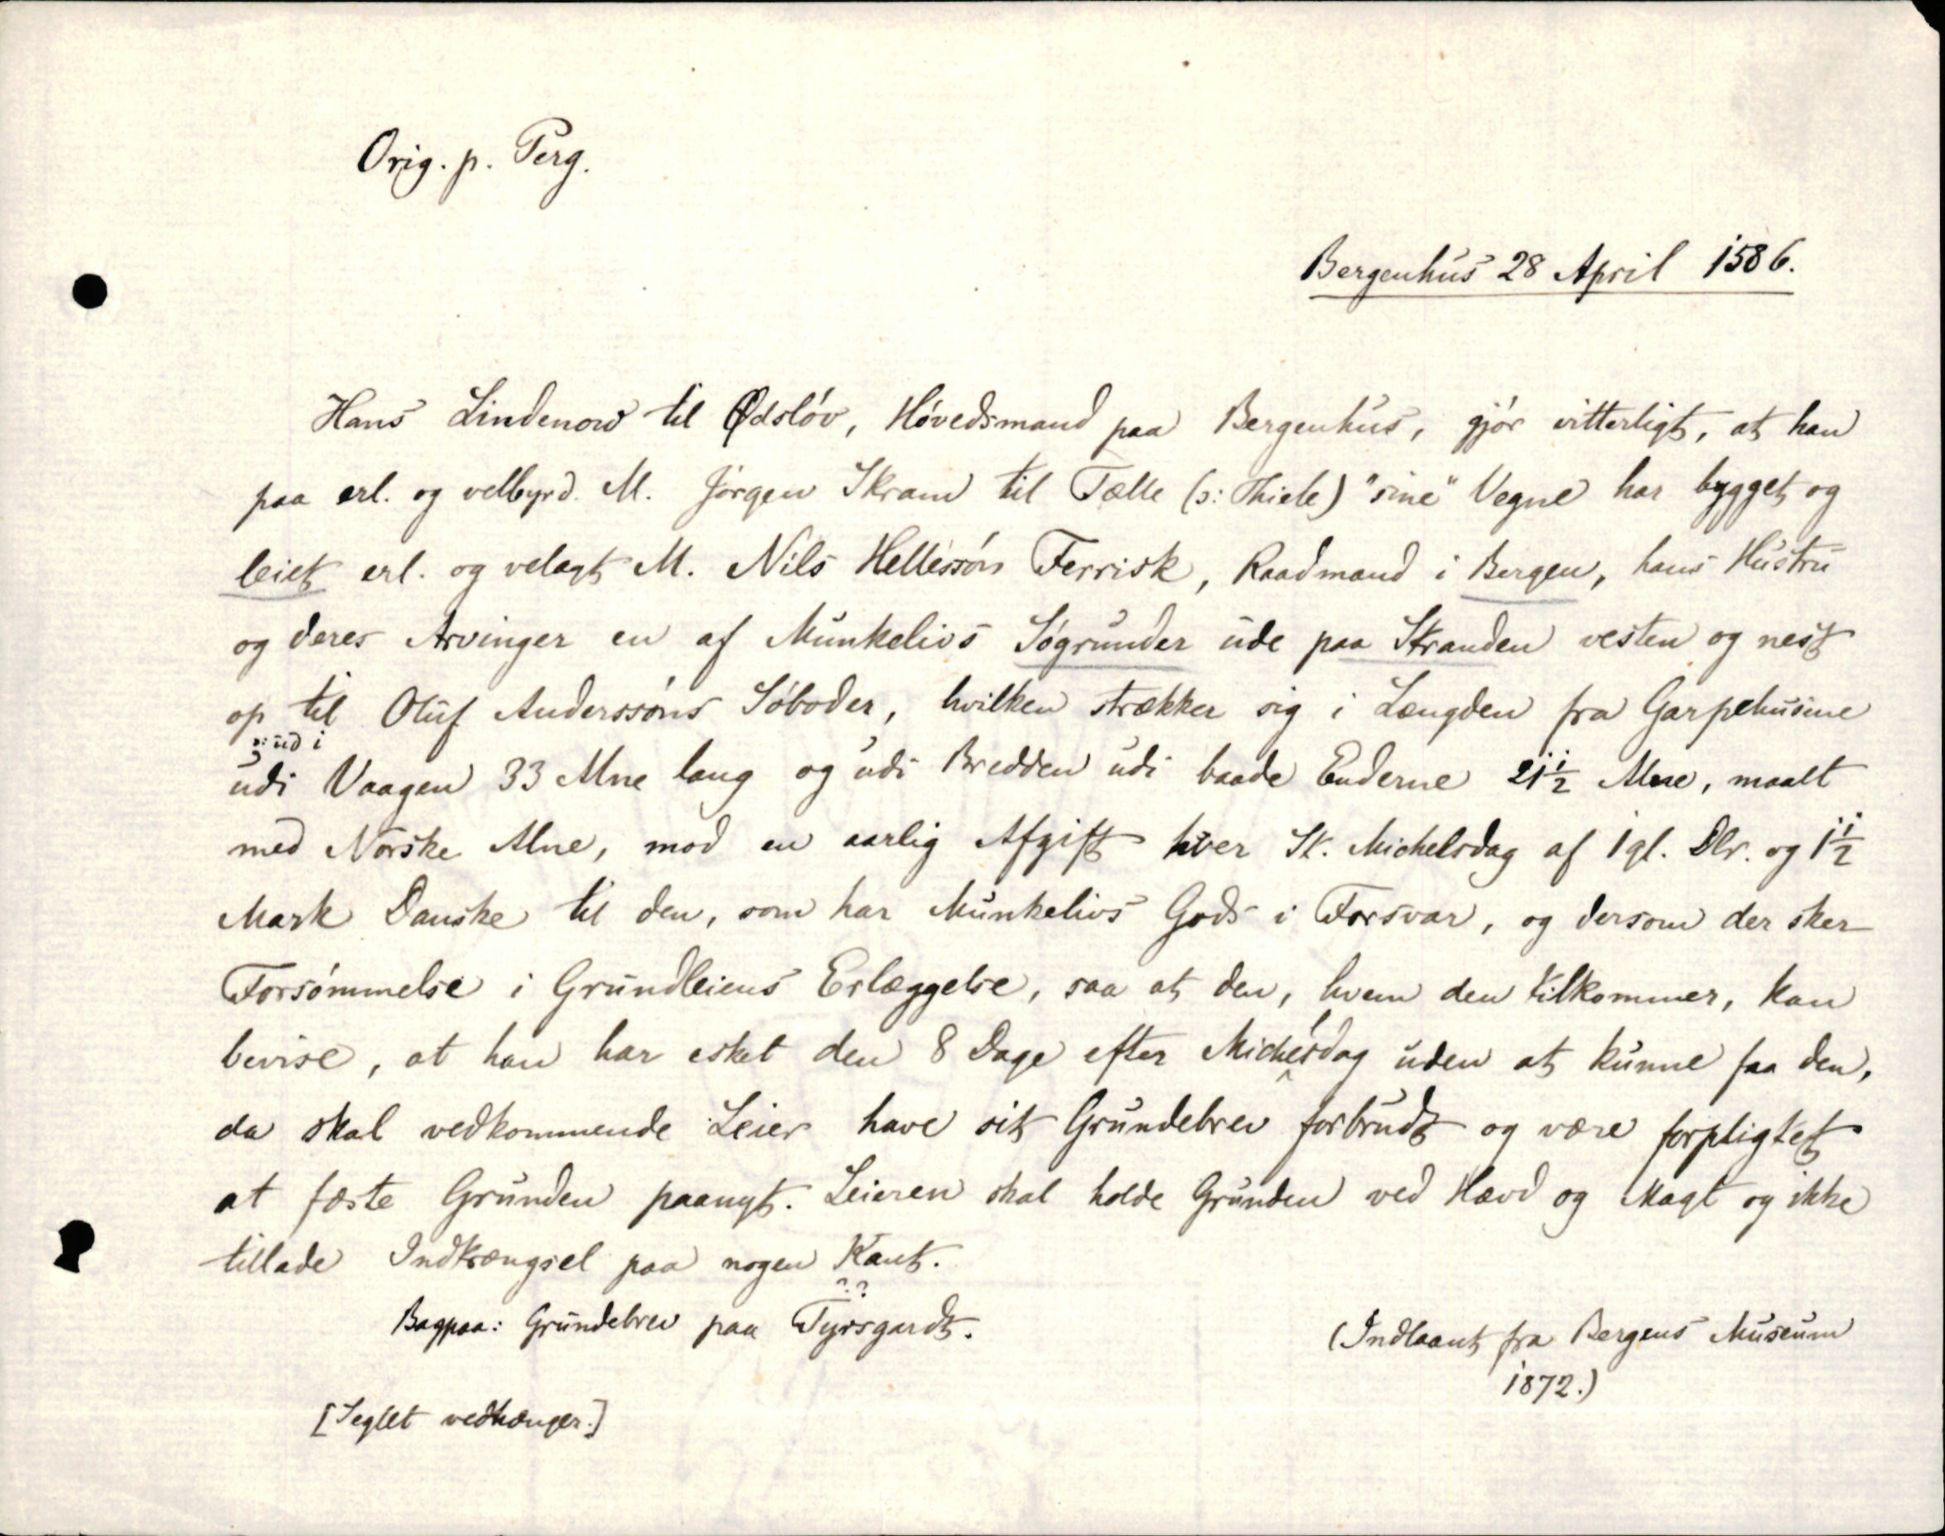 Orig. p. Perg.
Bergenhus 28 April 1586.
Hans Lindenow til Ødsløv, Høvedsmand paa Bergenhus, gjør vitterligt, at han
paa erl. og velbyrd. M. Jørgen Skram til Tælle (ɔ: Thiele) "sine" Vegne har bygget og
leiet erl. og velagt M. Nils Hellessøn Ferrisk, Raadmand i Bergen, hans Hustru
og deres Arvinger en af Munkelivs Søgrunder ude paa Stranden vesten og nest
op til Oluf Anderssøns Søboder, hvilken strækker sig i Længden fra Garpehusene
ɔ: ud i
udi Vaagen 33 Alne lang og udi Bredden udi baade Enderne 21 1/2 Alne, maalt
med Norske Alne, mod en aarlig Afgift hver St. Michelsdag af 1 gl. Dlr. og 1 1/2
Mark Danske til den, som har Munkelivs Gods i Forsvar, og dersom der sker
Forsømmelse i Grundleiens Erlæggelse, saa at den, hvem den tilkommer, kan
bevise, at han har esket den 8 Dage efter Michelsdag uden at kunne faa den,
da skal vedkommende Leier have sit Grundebrev forbrudt og være forpligtet
at fæste Grunden paanyt. Leieren skal holde Grunden ved Hævd og Magt og ikke
tillade Indtrængsel paa nogen Kant.
??
Bagpaa: Grundebrev paa Tyrsgardt.
(Indlaant fra Bergens Museum
1872.)
[Seglet vedhænger.]